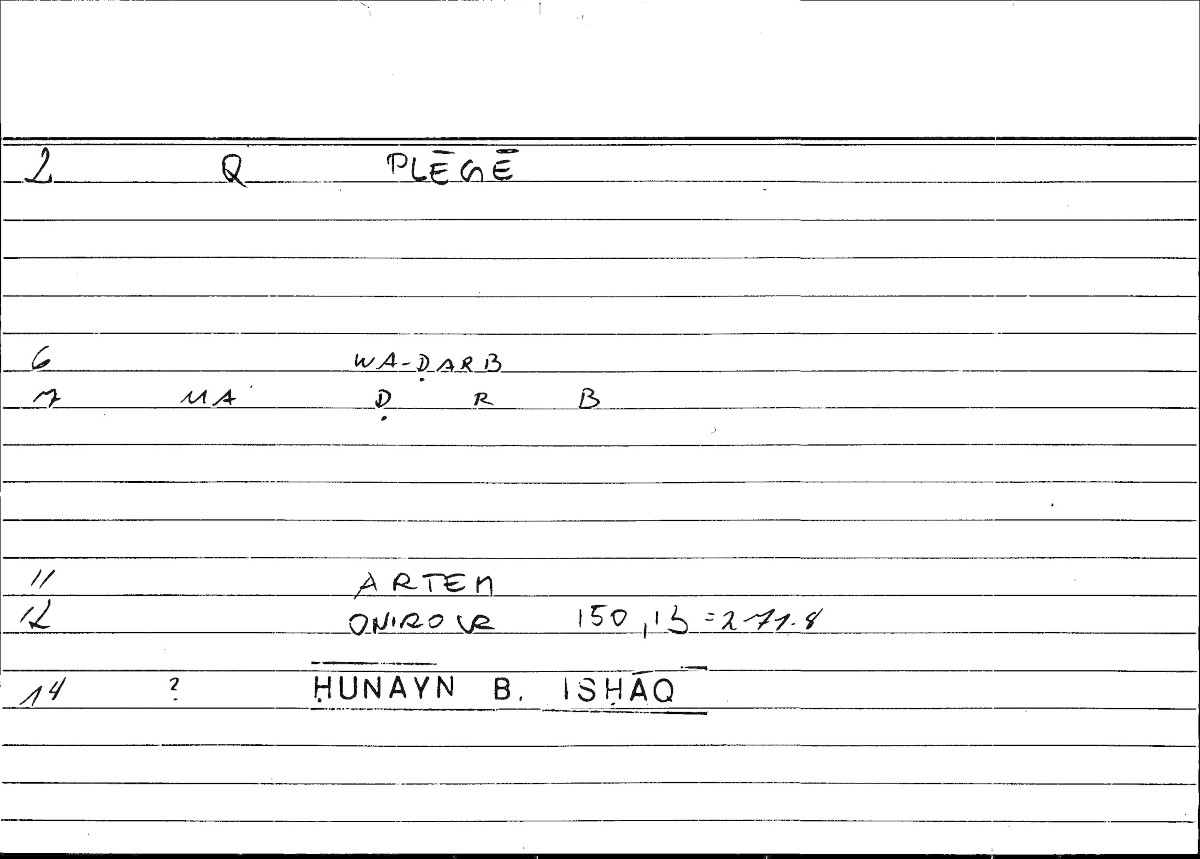 2 Q PLĒGĒ
6 WA-ḌARB
7 MA Ḍ R B
11 ARTEM
12 ONIROCR 150,13=271.8
14 ? ḤUNAYN B. ISḤĀQ